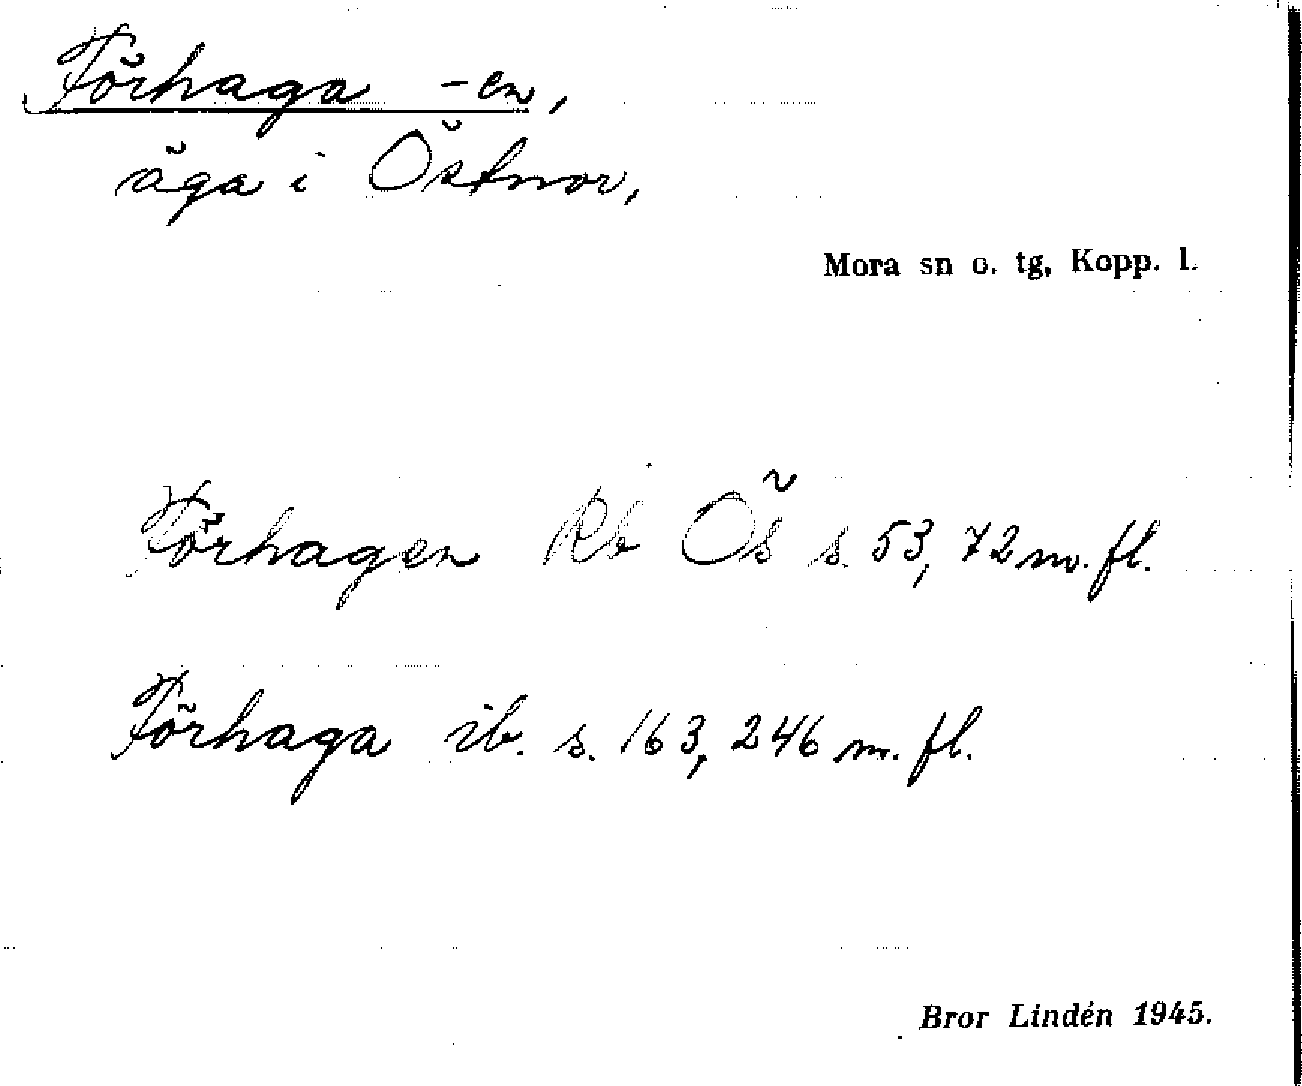 Förhaga -en,
äga i Östnor,
Mora sn o. tg, Kopp. l.
Förhagen Rb Ös s. 53, 72 m. fl.
Förhaga ib. s. 163, 246 m. fl.
Bror Lindén 1945.